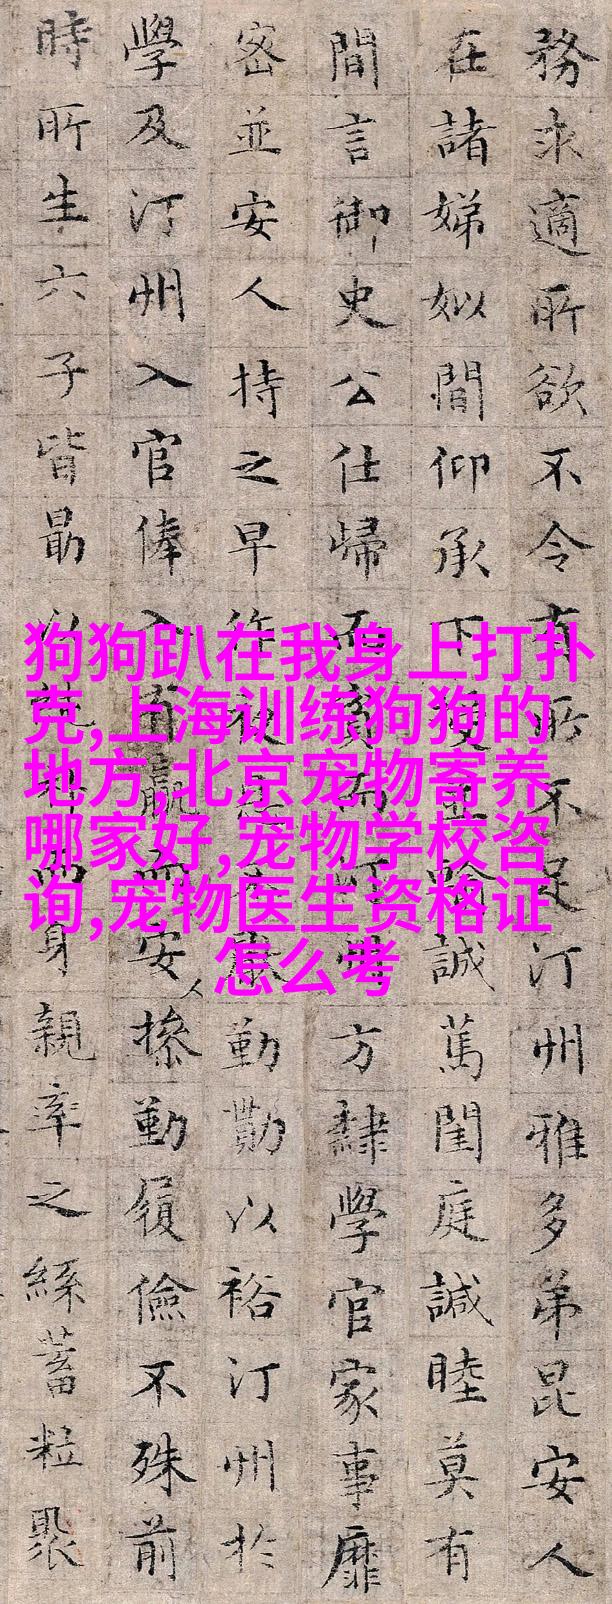 務求適所欲不令有所不足汀州雅多弟昆安人
在諸娣姒間仰承下輸誠萬閨庭諴睦莫有
間言御史公仕歸而貧而汀州方隸學官家事靡
密並安人持之早作夜勤勩以裕汀州於
學及汀州入官俸入有羸而安人操勤履儉不殊前
時所生六子皆勗以身親率之絲蓄粒聚
狗狗趴在我身上打扑
克,上海训练狗狗的
地方,北京宠物寄养
哪家好,宠物学校咨
询,宠物医生资格证
怎么考